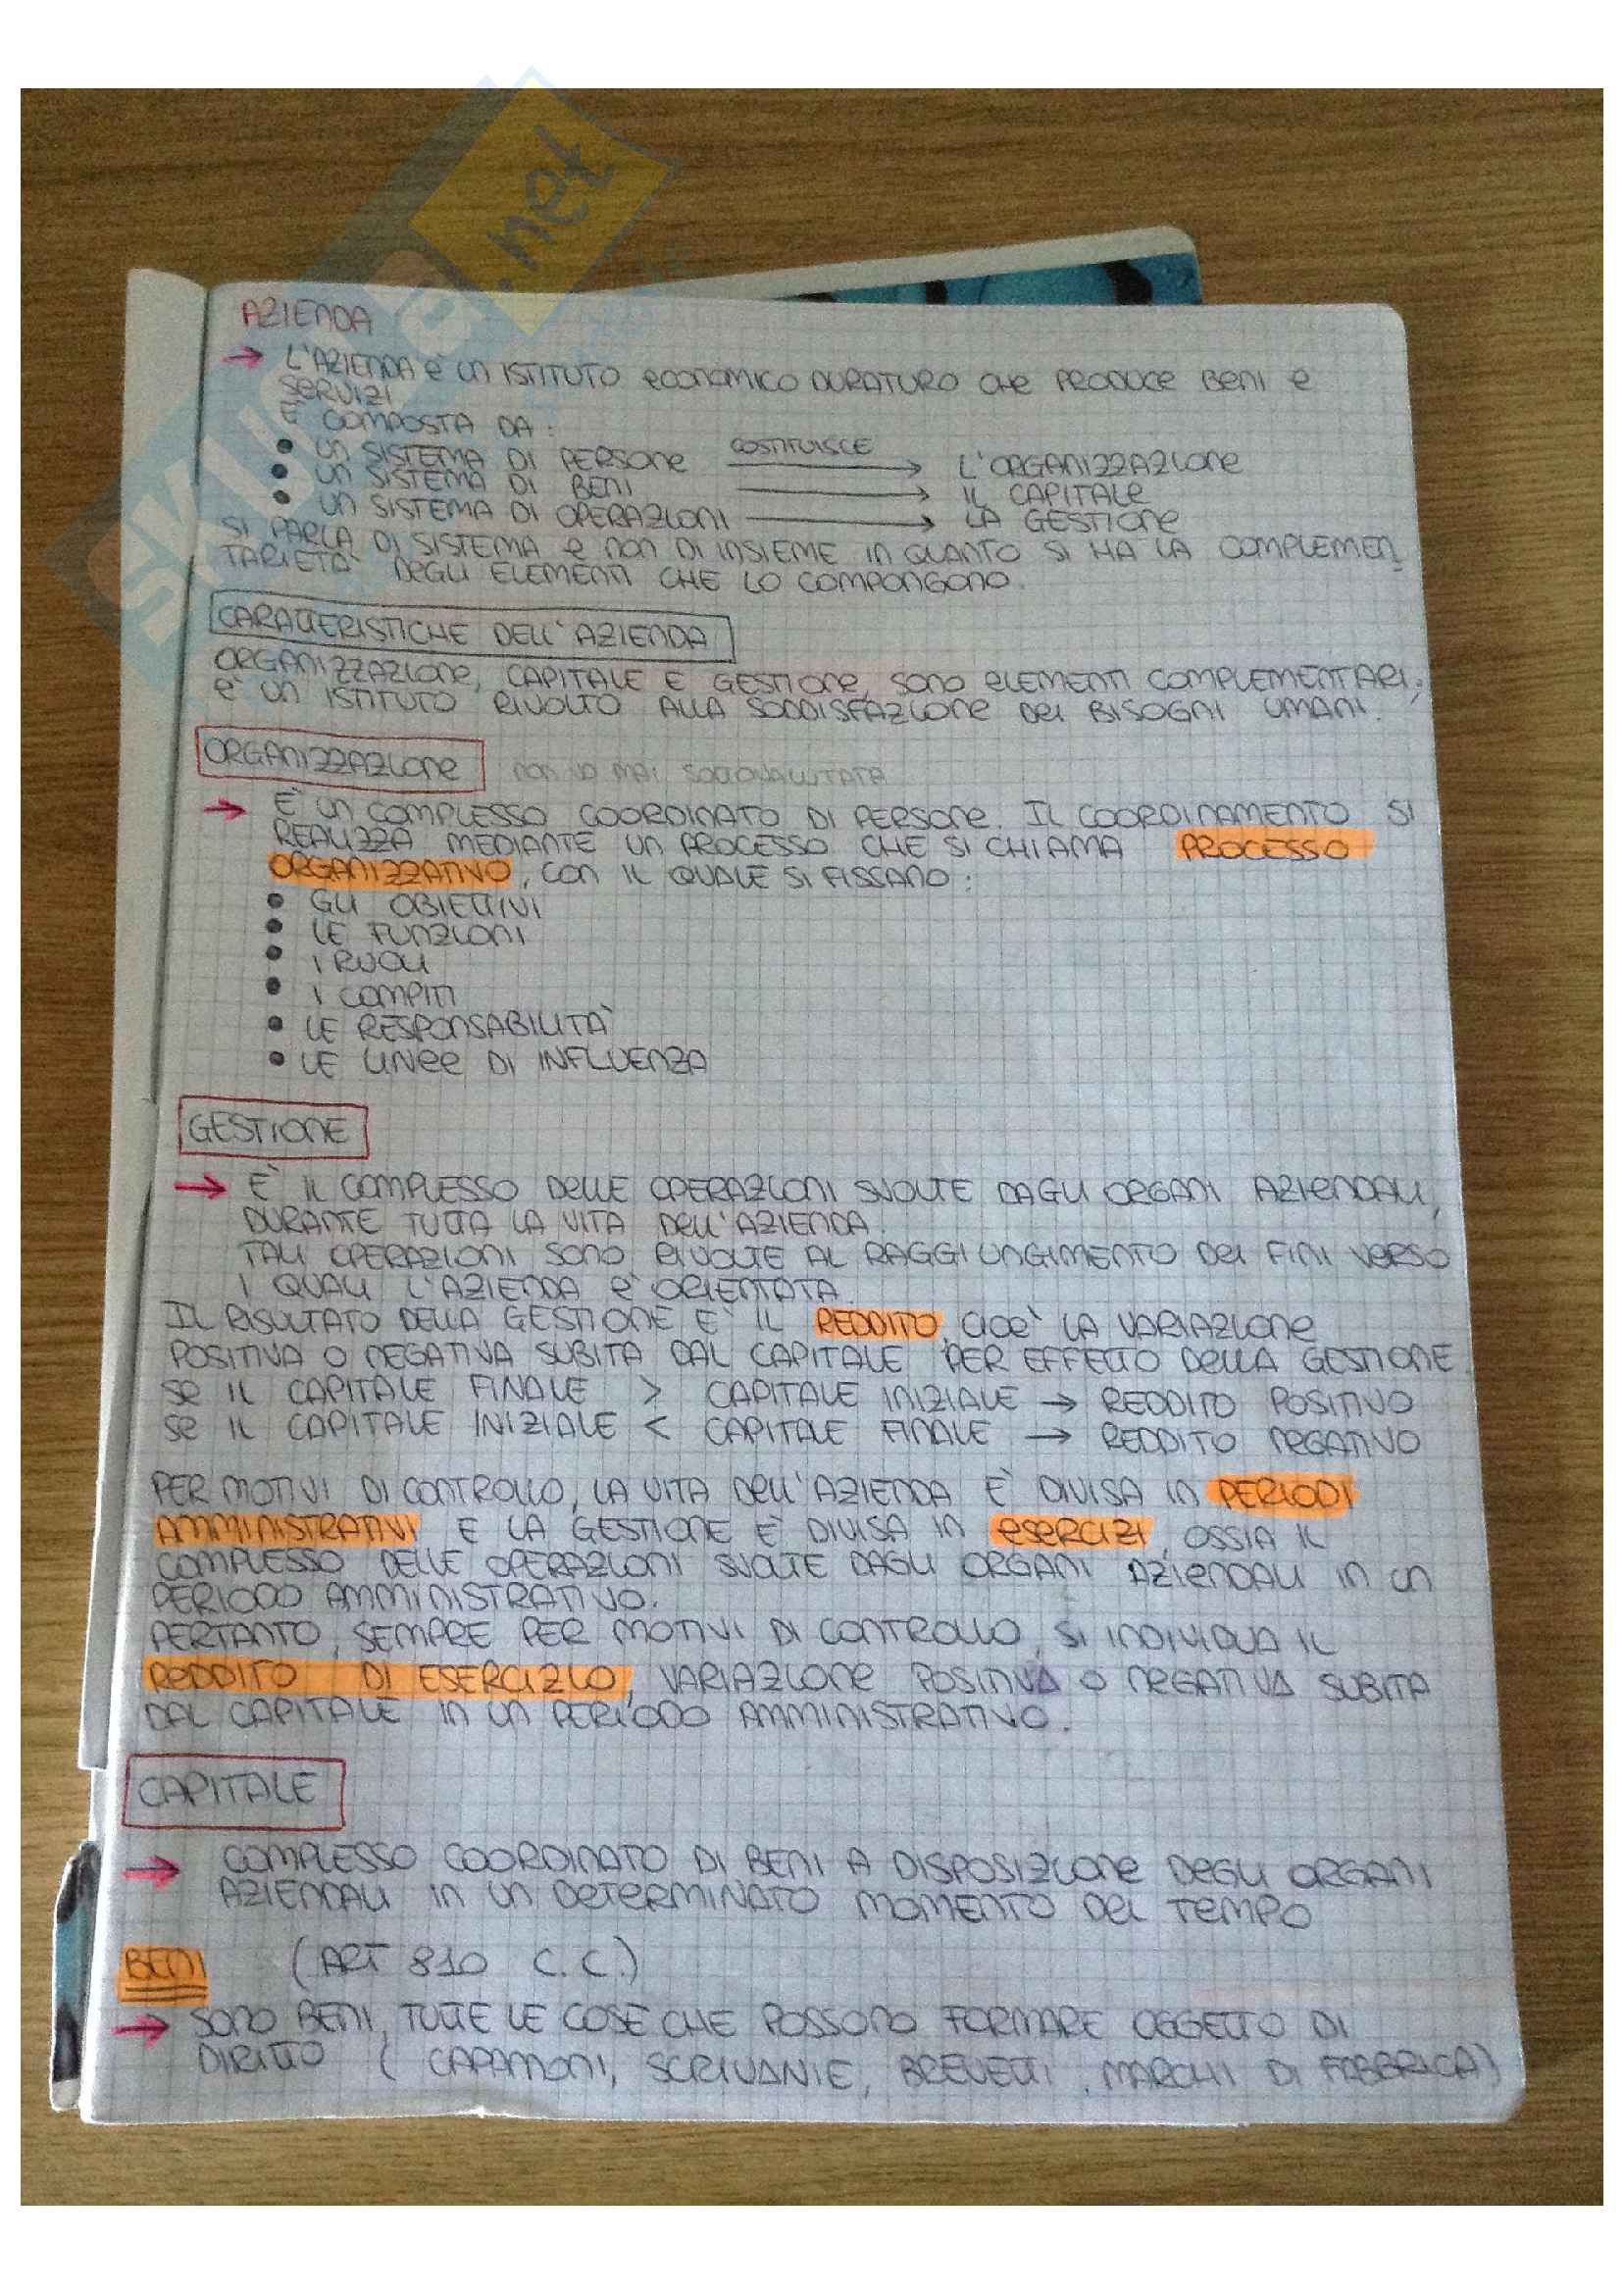 SKUOLA.net
AZIENDA
→ L'AZIENDA è UN ISTITUTO economico DURATURO che PRODUCE Beni e
SERVIZI
È COMPOSTA DA:
• UN SISTEMA DI PERSONE COSTITUISCE → L'ORGANIZZAZIONE
• UN SISTEMA DI BENI → IL CAPITALE
• UN SISTEMA DI OPERAZIONI → LA GESTIONE
SI PARLA DI SISTEMA e non DI INSIEME IN QUANTO SI HA LA COMPLEMEN_
TARIETÀ DEGLI ELEMENTI CHE LO COMPONGONO.
CARATTERISTICHE DELL'AZIENDA
ORGANIZZAZIONE, CAPITALE E GESTIONE, SONO ELEMENTI COMPLEMENTARI;
È UN ISTITUTO RIVOLTO ALLA SODDISFAZIONE DEI BISOGNI UMANI.
ORGANIZZAZIONE NON VA MAI SOTTOVALUTATA
→ È UN COMPLESSO COORDINATO DI PERSONE. IL COORDINAMENTO SI
REALIZZA MEDIANTE UN PROCESSO CHE SI CHIAMA PROCESSO
ORGANIZZATIVO, CON IL QUALE SI FISSANO:
• GLI OBIETTIVI
• LE FUNZIONI
• I RUOLI
• I COMPITI
• LE RESPONSABILITÀ
• LE LINEE DI INFLUENZA
GESTIONE
→ È IL COMPLESSO DELLE OPERAZIONI SVOLTE DAGLI ORGANI AZIENDALI,
DURANTE TUTTA LA VITA DELL'AZIENDA.
TALI OPERAZIONI SONO RIVOLTE AL RAGGIUNGIMENTO DEI FINI VERSO
I QUALI L'AZIENDA È ORIENTATA.
IL RISULTATO DELLA GESTIONE È IL REDDITO, CIOÈ LA VARIAZIONE
POSITIVA O NEGATIVA SUBITA DAL CAPITALE PER EFFETTO DELLA GESTIONE
SE IL CAPITALE FINALE > CAPITALE INIZIALE → REDDITO POSITIVO
SE IL CAPITALE INIZIALE < CAPITALE FINALE → REDDITO NEGATIVO
PER MOTIVI DI CONTROLLO, LA VITA DELL'AZIENDA È DIVISA IN PERIODI
AMMINISTRATIVI E LA GESTIONE È DIVISA IN ESERCIZI, OSSIA IL
COMPLESSO DELLE OPERAZIONI SVOLTE DAGLI ORGANI AZIENDALI IN UN
PERIODO AMMINISTRATIVO.
PERTANTO, SEMPRE PER MOTIVI DI CONTROLLO, SI INDIVIDUA IL
REDDITO DI ESERCIZIO, VARIAZIONE POSITIVA O NEGATIVA SUBITA
DAL CAPITALE IN UN PERIODO AMMINISTRATIVO.
CAPITALE
→ COMPLESSO COORDINATO DI BENI A DISPOSIZIONE DEGLI ORGANI
AZIENDALI IN UN DETERMINATO MOMENTO DEL TEMPO
BENI (ART 810 C.C.)
→ SONO BENI, TUTTE LE COSE CHE POSSONO FORMARE OGGETTO DI
DIRITTO (CAPANNONI, SCRIVANIE, BREVETTI, MARCHI DI FABBRICA)